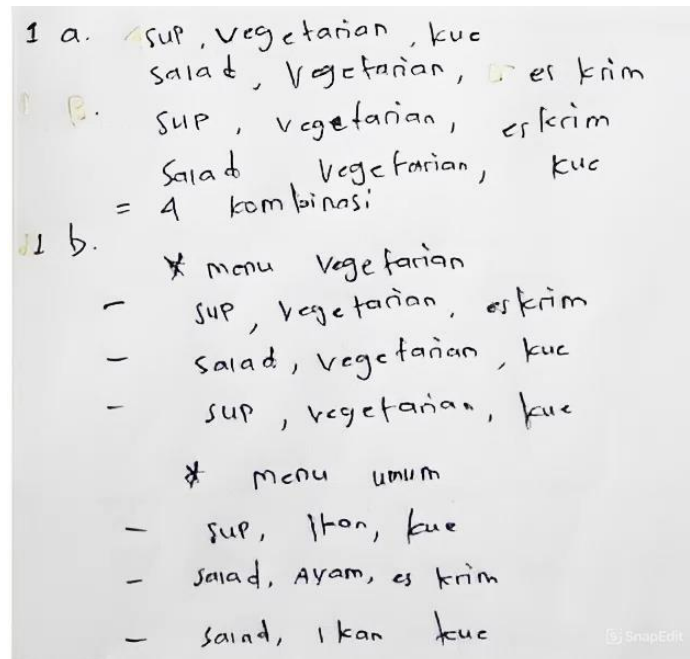 1 a. sup, vegetarian, kue
salad, vegetarian, es krim
B. sup, vegetarian, es krim
Salad vegetarian, kue
= 4 kombinasi
1 b.
* menu vegetarian
- sup, vegetarian, es krim
- salad, vegetarian, kue
- sup, vegetarian, kue
* menu umum
- sup, Ikan, kue
- salad, Ayam, es krim
- salad, ikan kue
SnapEdit